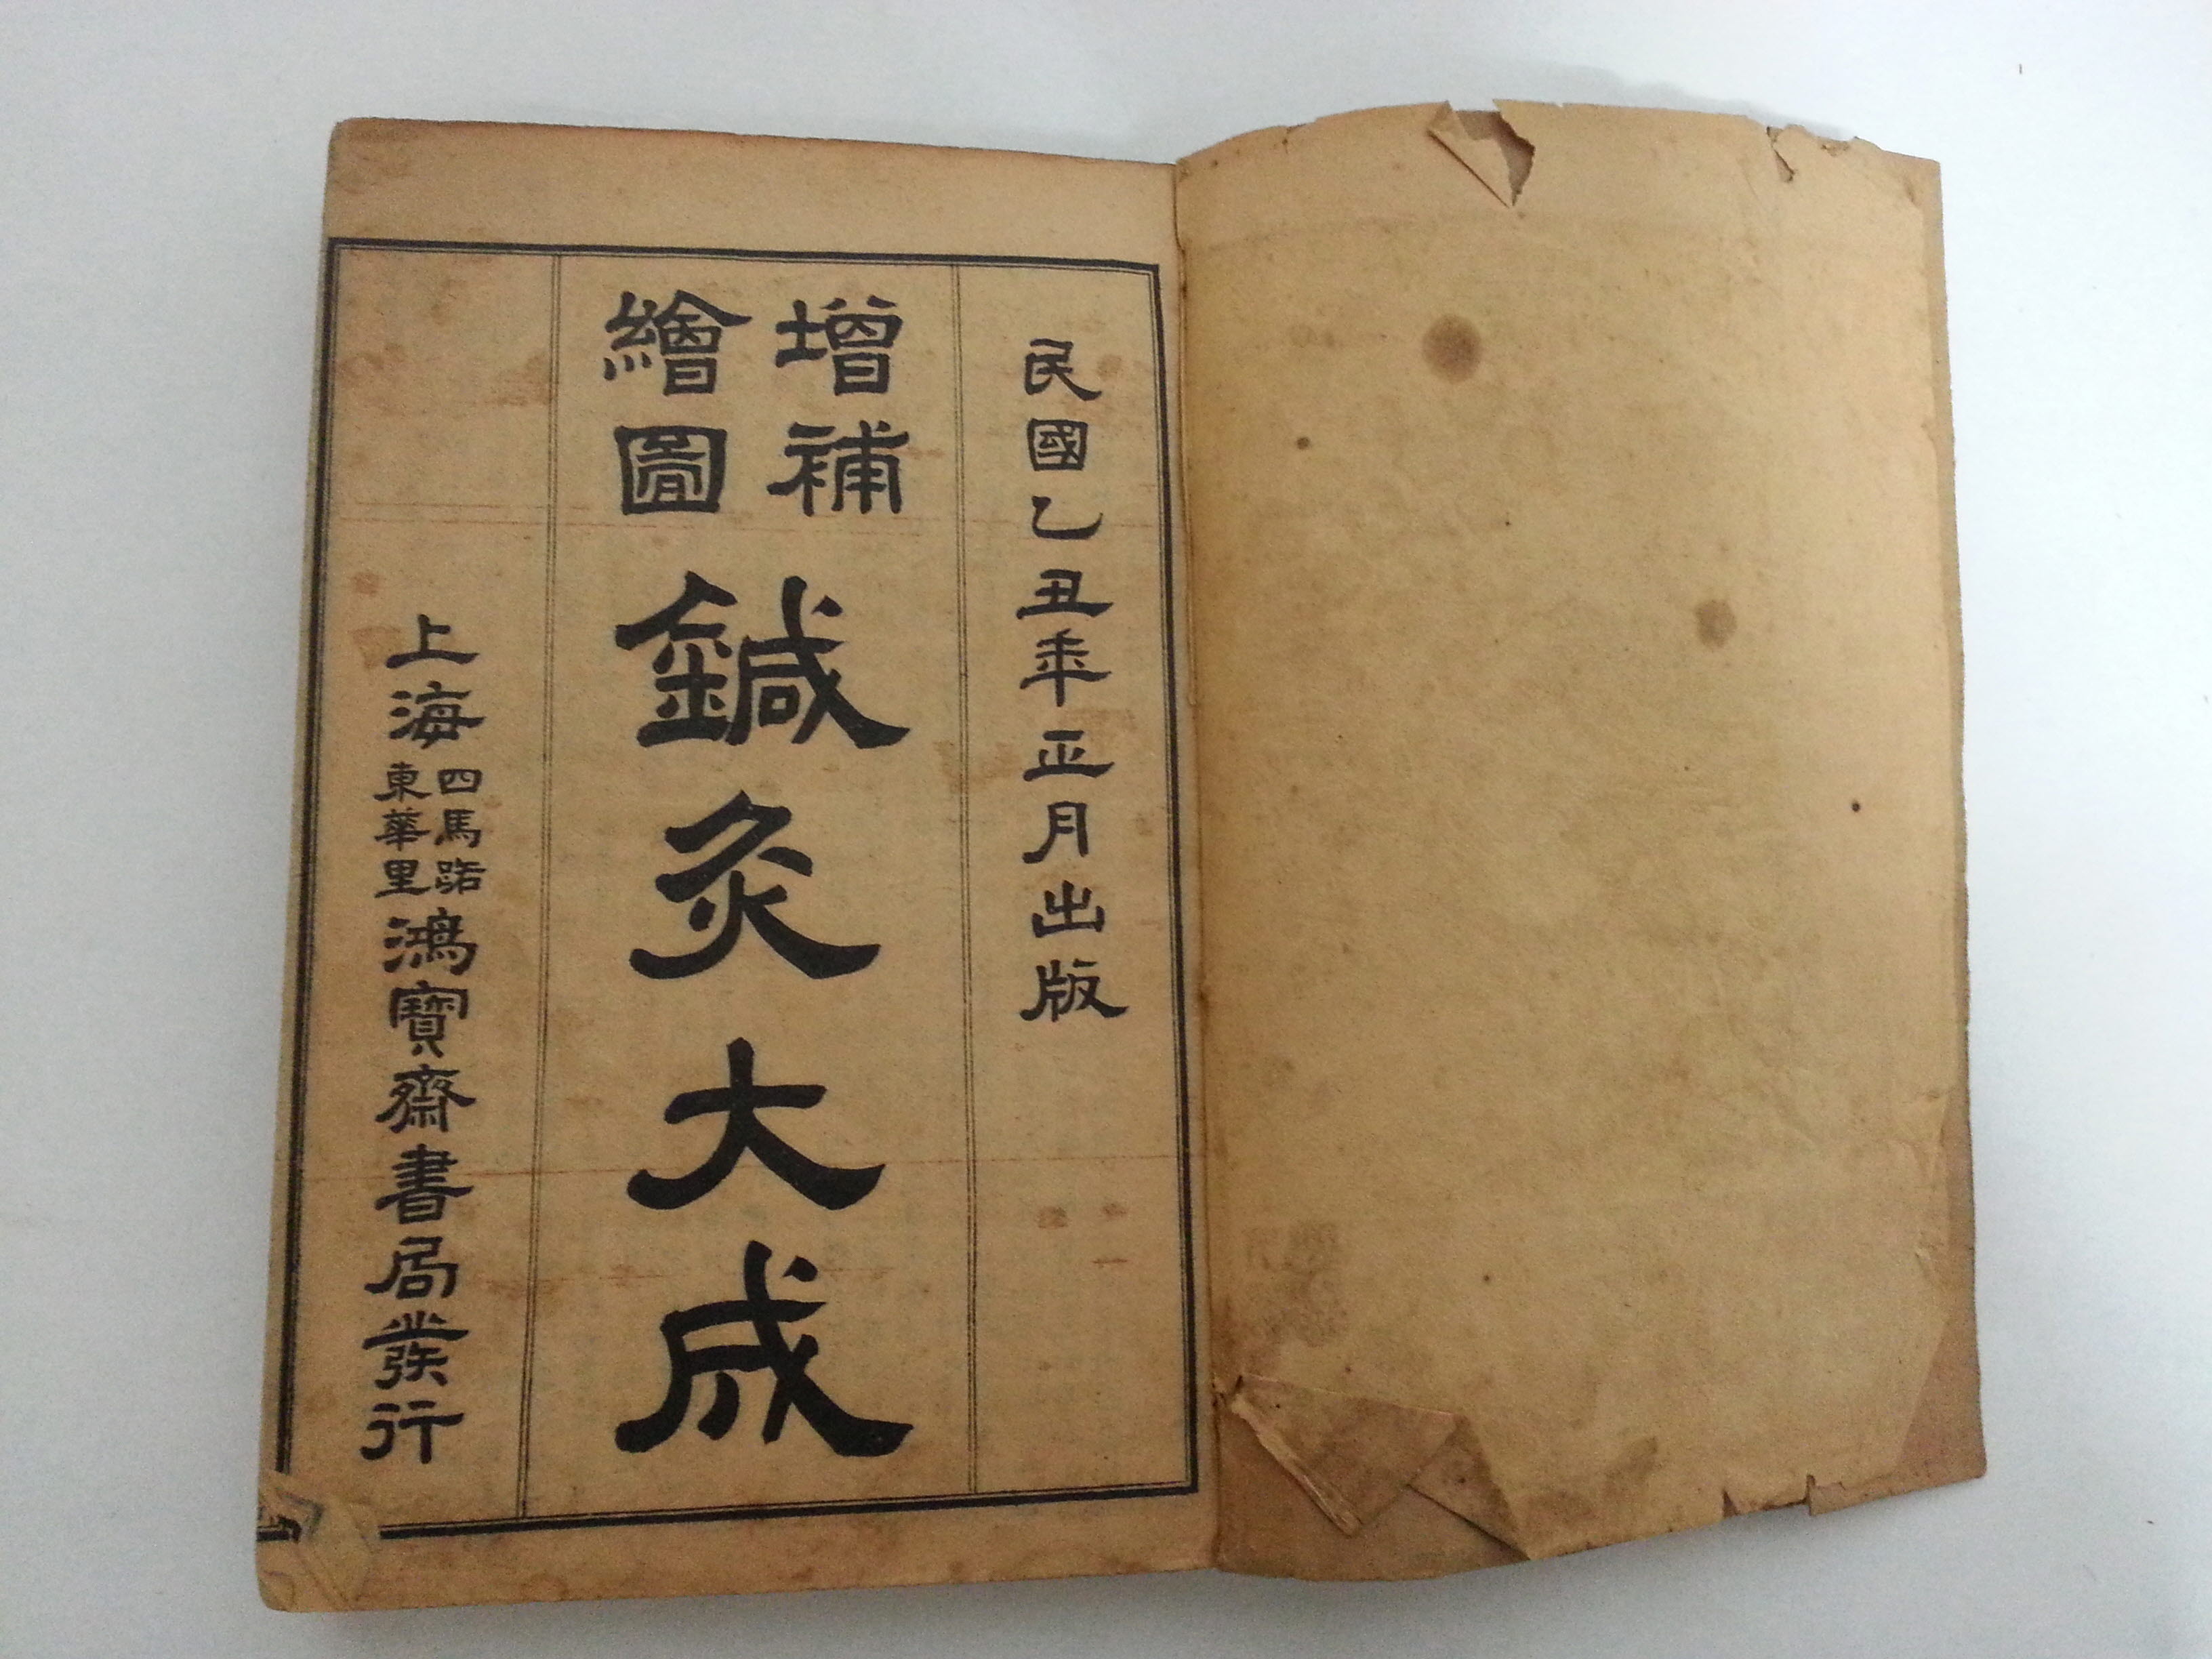 民國乙丑年正月出版
增補
繪圖
鍼灸大成
上海
四馬路
東華里
鴻寶齋書局發行